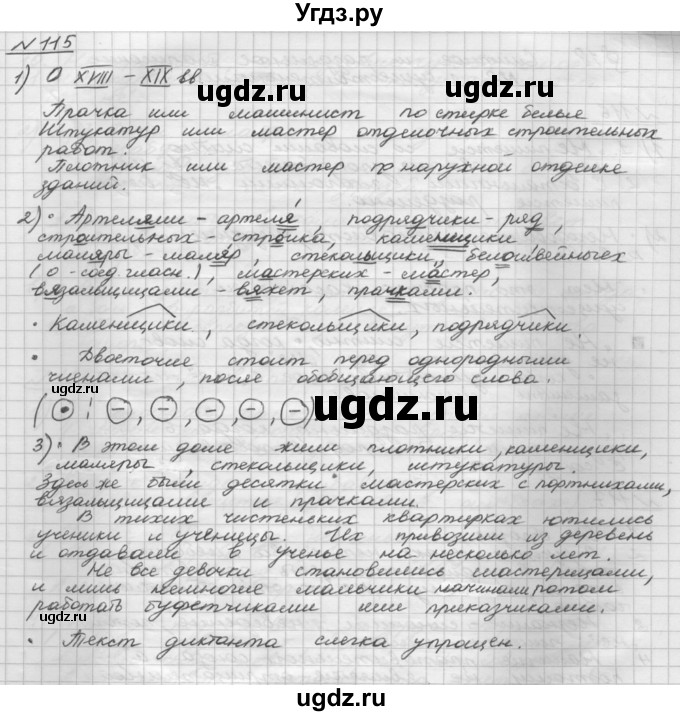 Угдз.ру
№115
1) О XVIII – XIX вв
ugdz.ru
ugdz.ru
Прачка или машинист по стирке белья
Штукатур или мастер отделочных строительных
работ.
Плотник или мастер по наружной отделке
зданий.
2) • Артелями – артеля, подрядчики – ряд,
строительных – стройка, каменщики
маляры – маляр, стекольщики, белошвейных
(о – соед. гласн.), мастерских – мастер,
вязальщицами – вяжет, прачками.
• Каменщики, стекольщики, подрядчики.
• Двоеточие стоит перед однородными
членами, после обобщающего слова.
ugdz.ru
3) • В этом доме жили плотники, каменщики,
маляры, стекольщики, штукатуры.
Здесь же были десятки мастерских с портнихами,
вязальщицами и прачками.
В тихих чистеньких квартирках ютились
ученики и ученицы. Их привозили из деревень
и отдавали в ученье на несколько лет.
Не все девочки становились мастерицами,
и лишь немногие мальчики начинали потом
работать буфетчиками или приказчиками.
• Текст диктанта слегка упрощен.
ugdz.ru
ugdz.ru
Угдз.ру